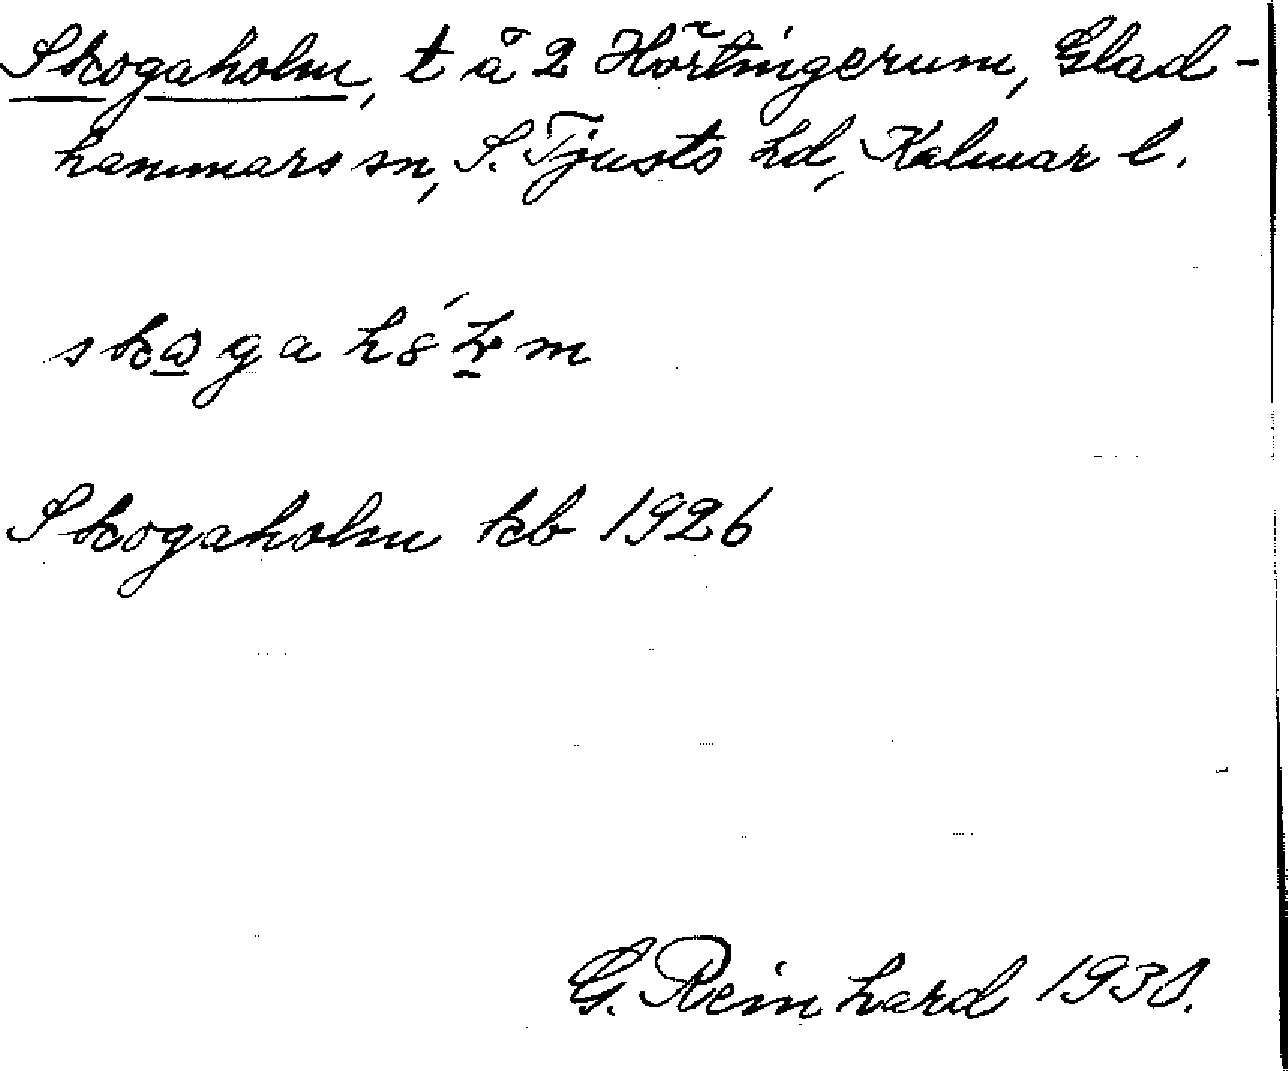 Skogaholm, t å 2 Hörtingerum, Glad-
hammars sn, S. Tjusts hd, Kalmar l.
Skogaholm kb 1926
G. Reinhard 1938.